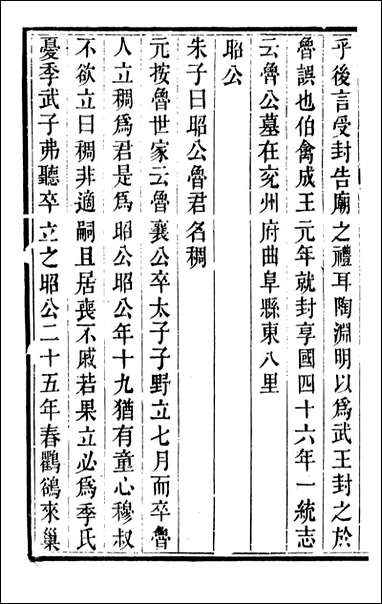 乎後言受封告廟之禮耳陶淵明以爲武王封之於
魯誤也伯禽成王元年就封享國四十六年一統志
云魯公墓在兗州府曲阜縣東八里
昭公
朱子曰昭公魯君名稠
元按魯世家云魯襄公卒太子子野立七月而卒魯
人立稠爲君是爲昭公昭公年十九猶有童心穆叔
不欲立曰稠非適嗣且居喪不戚若果立必爲季氏
憂季武子弗聽卒立之昭公二十五年春鸛鵒來巢